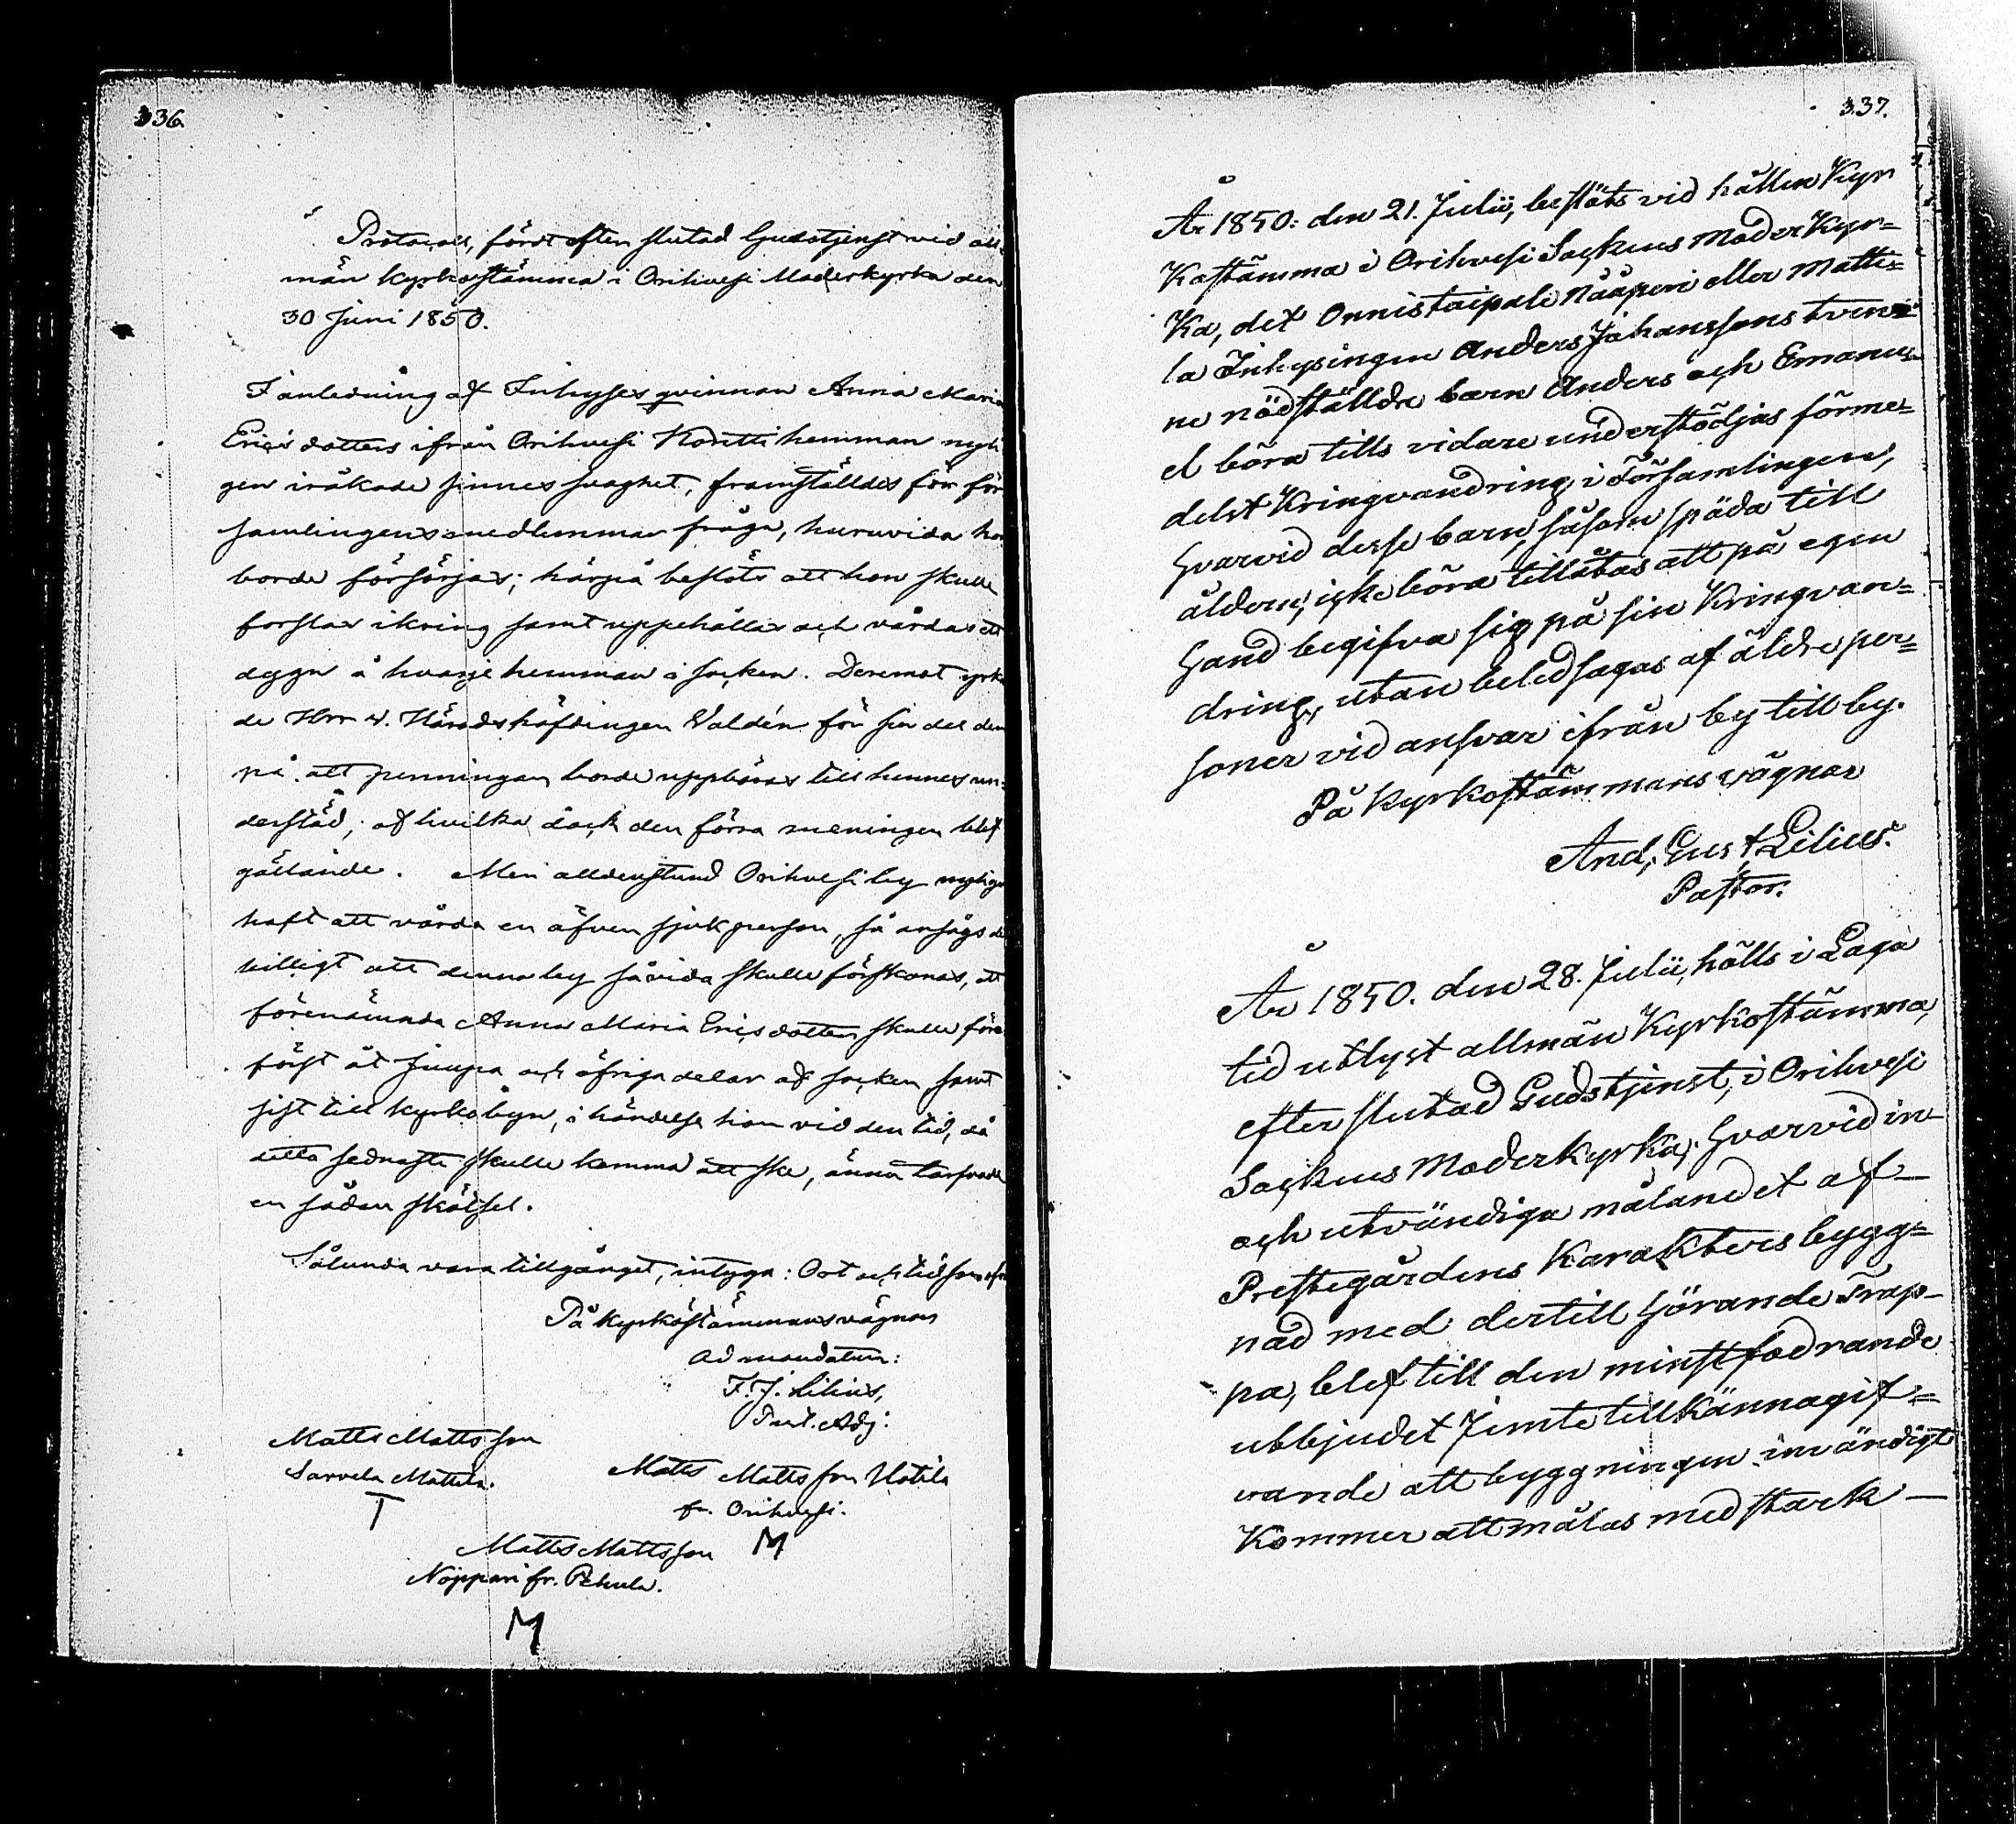 336.
Protocoll, fördt efter slutad Gudstjenst vid all-
män kyrkostämma i Orihvesi Moderkyrka den
30 Juni 1850.
I anledning af Inhyses qvinnan Anna Maria
Ericsdotters ifrån Orihvesi hemman nyli
gen iråkade sinnes svaghet, framställdes för för
samlingens medlemmar fråga, huruvida hon
borde försörjas; härpå beslöts att hon skulle
forslas ikring samt uppehållas och vårdas ett
dygn å hvarje hemman i socken. Deremot yrka
de Herr v. Häradshöfdingen Valdén för sin del der
på att penningar borde uppbäras till hennes un-
derstöd; af hvilka dock den förra meningen blef
gällande. Men alldenstund Orihvesi by nyligen
haft att vårda en äfven sjuk person, så ansågs de
billigt att denna by såvida skulle förskonas, att
förenämnda Anna Maria Ericsdotter skulle föras
först åt Juupa och öfriga delar af socken, samt
sist till kyrkobyn, i händelse hon vid den tid, då
detta sednaste skulle komma att ske, ännu tarfvade
en sådan skötsel.
Sålunda vara tillgånget, intyga: Ort och tid som ofvan
På kyrkostämmans vägnar
Ad mandatum:
F. J. Lilius,
Past. Adj.
Matts Mattsson
Sarvela Mattila.
T
Matts Mattsson Uotila
fr. Orihvesi.
M
Matts Mattsson
Nöppari fr. Pehula.
M
337.
År 1850. den 21. Julii, beslöts vid hållen Kyr
Kostämma i Orihvesi Sockens Moder Kyr=
Ka, det Onnistaipale Nääpori eller Matti=
la Inhysingen Anders Johanssons tven=
ne nödställda barn Anders och Emanu=
el böra tills vidare understödjas förme=
delst Kringvandring i Församlingen,
hvarvid desse barn, såsom späda till
åldern, icke böra tillåtas att på egen
hand begifva sig på sin Kringvan=
dring, utan beledsagas af äldre per=
soner vid ansvar ifrån by till by.
På Kyrkostämmans vägnar
And. Gust. Lilius.
Pastor.
År 1850. den 28. Julii, hölls i Laga
tid utlyst allmän Kyrkostämma,
efter slutad Gudstjenst, i Orihvesi
Sockens Moderkyrka; hvarvid in-
och utvändiga målandet af
Prestegårdens Karakters bygg=
nad med dertill hörande Trap-
pa, blef till den minstfodrande
utbjudet jemte tillkännagif=
vande att byggningen invändigt
Kommer att målas med stark